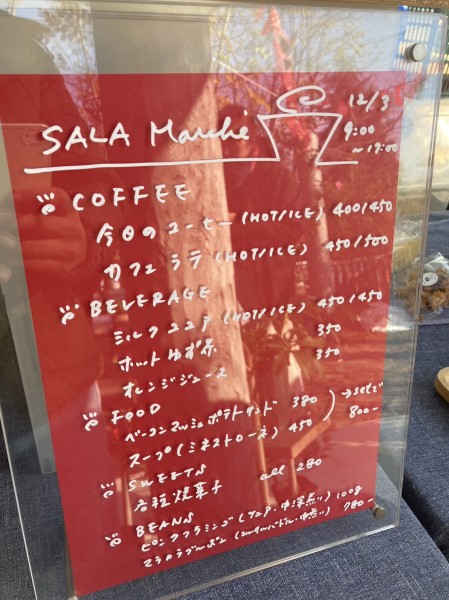 SALA Marché
12/3
9:00
~17:00
COFFEE
今日のコーヒー (HOT/ICE) 400/450
カフェラテ (HOT/ICE) 450/500
BEVERAGE
ミルクココア (HOT/ICE) 450/450
ホットゆず茶 350
オレンジジュース 350
FOOD
ベーコンマッシュポテトサンド 380
スープ(ミネストローネ) 450
→setで
800-
SWEETS
各種焼菓子 all 280
BEANS
ピンクフラミンゴ (ケニア・中深煎り) 100g
780-